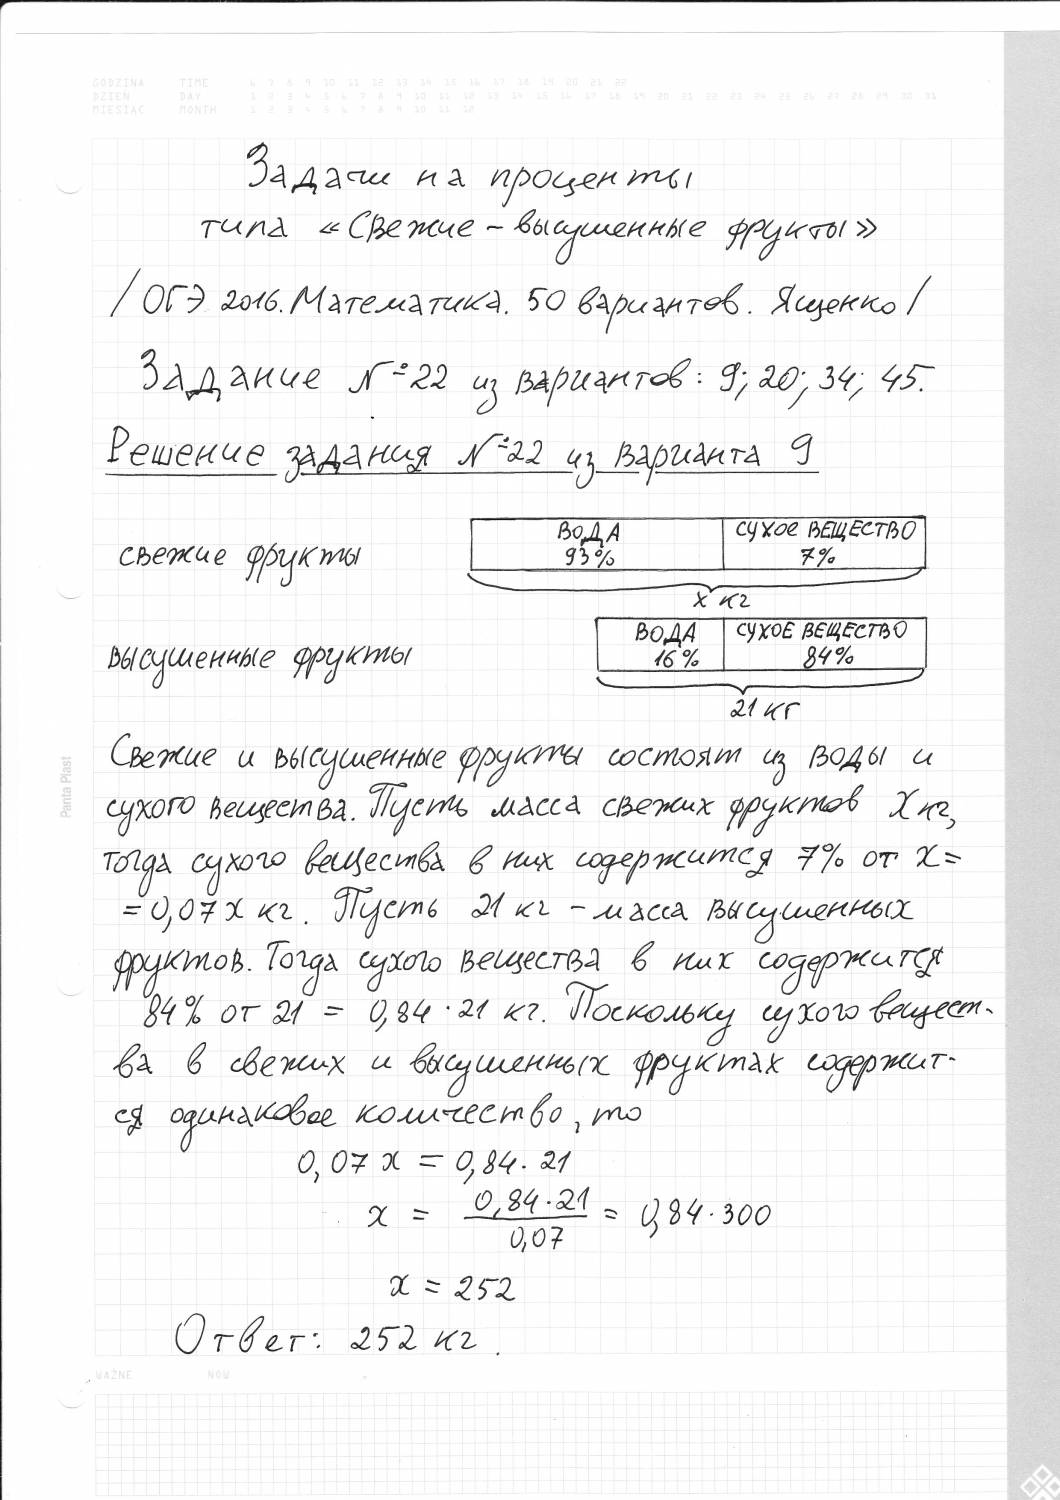 GODZINA TIME 6 7 8 9 10 11 12 13 14 15 16 17 18 19 20 21 22
DZIEŃ DAY 1 2 3 4 5 6 7 8 9 10 11 12 13 14 15 16 17 18 19 20 21 22 23 24 25 26 27 28 29 30 31
MIESIĄC MONTH 1 2 3 4 5 6 7 8 9 10 11 12
Задачи на проценты
типа «Свежие – высушенные фрукты»
/ОГЭ 2016. Математика. 50 вариантов. Ященко/
Задание №22 из вариантов: 9; 20; 34; 45.
Решение задания №22 из варианта 9
свежие фрукты
ВОДА 93%
СУХОЕ ВЕЩЕСТВО 7%
х кг
высушенные фрукты
ВОДА 16%
СУХОЕ ВЕЩЕСТВО 84%
21 кг
Свежие и высушенные фрукты состоят из воды и
сухого вещества. Пусть масса свежих фруктов х кг,
тогда сухого вещества в них содержится 7% от х =
= 0,07х кг. Пусть 21 кг – масса высушенных
фруктов. Тогда сухого вещества в них содержится
84% от 21 = 0,84 · 21 кг. Поскольку сухого вещест-
ва в свежих и высушенных фруктах содержит-
ся одинаковое количество, то
0,07 х = 0,84 · 21
х = 0,84 · 21 / 0,07 = 0,84 · 300
х = 252
Ответ: 252 кг.
WAŻNE NOW
Panta Plast